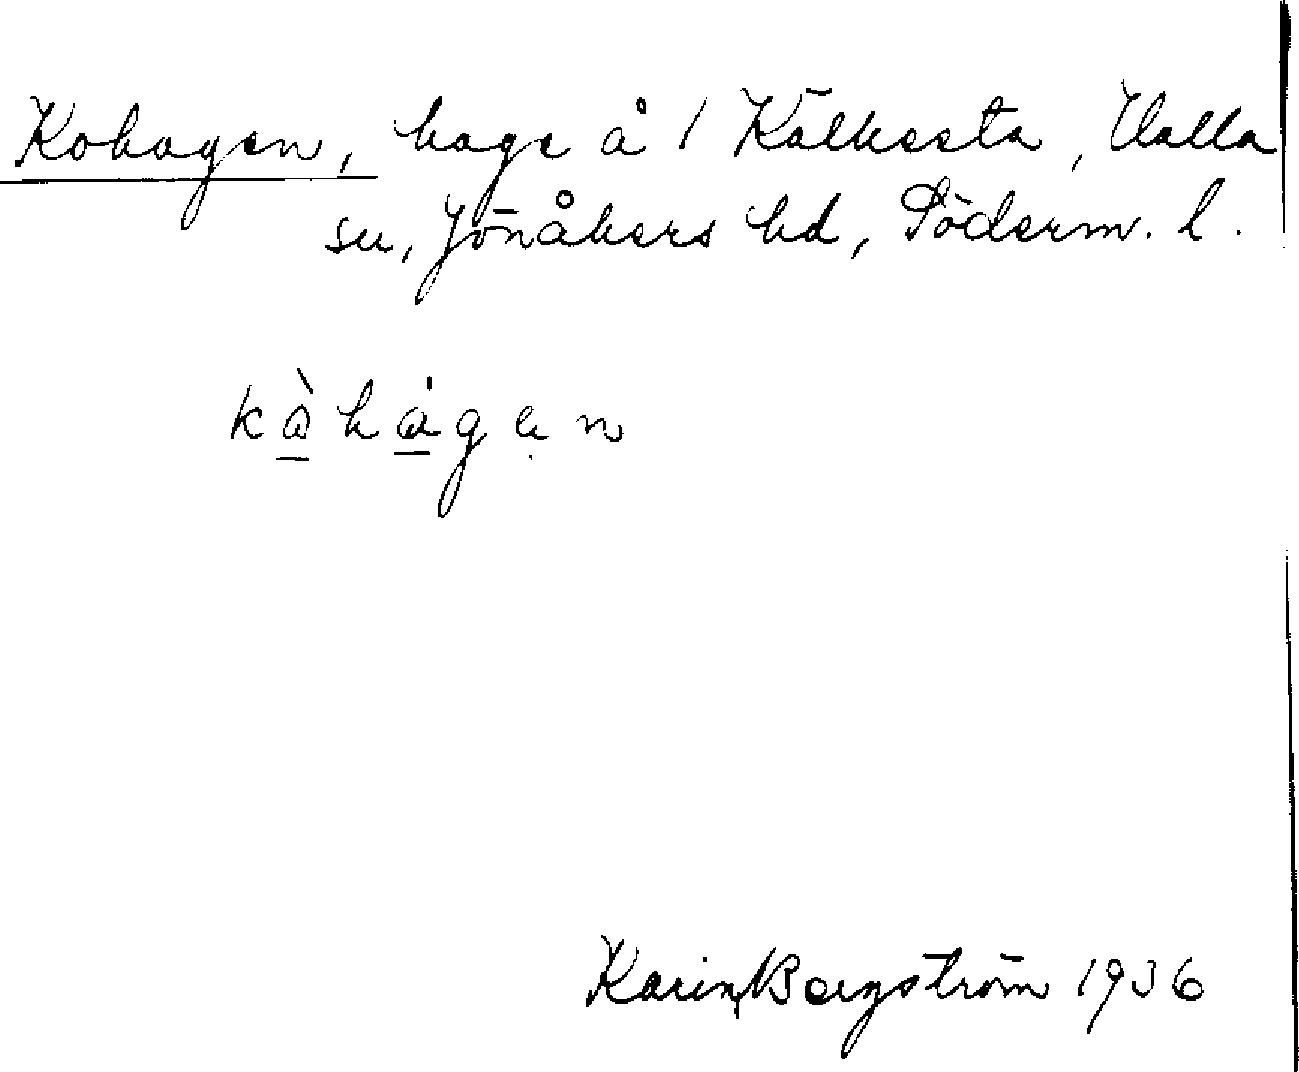 Kohagen, hage å 1 Kälkesta, Halla
sn, Jönåkers hd, Söderm. l.
kòhágen
Karin Bergström 1936